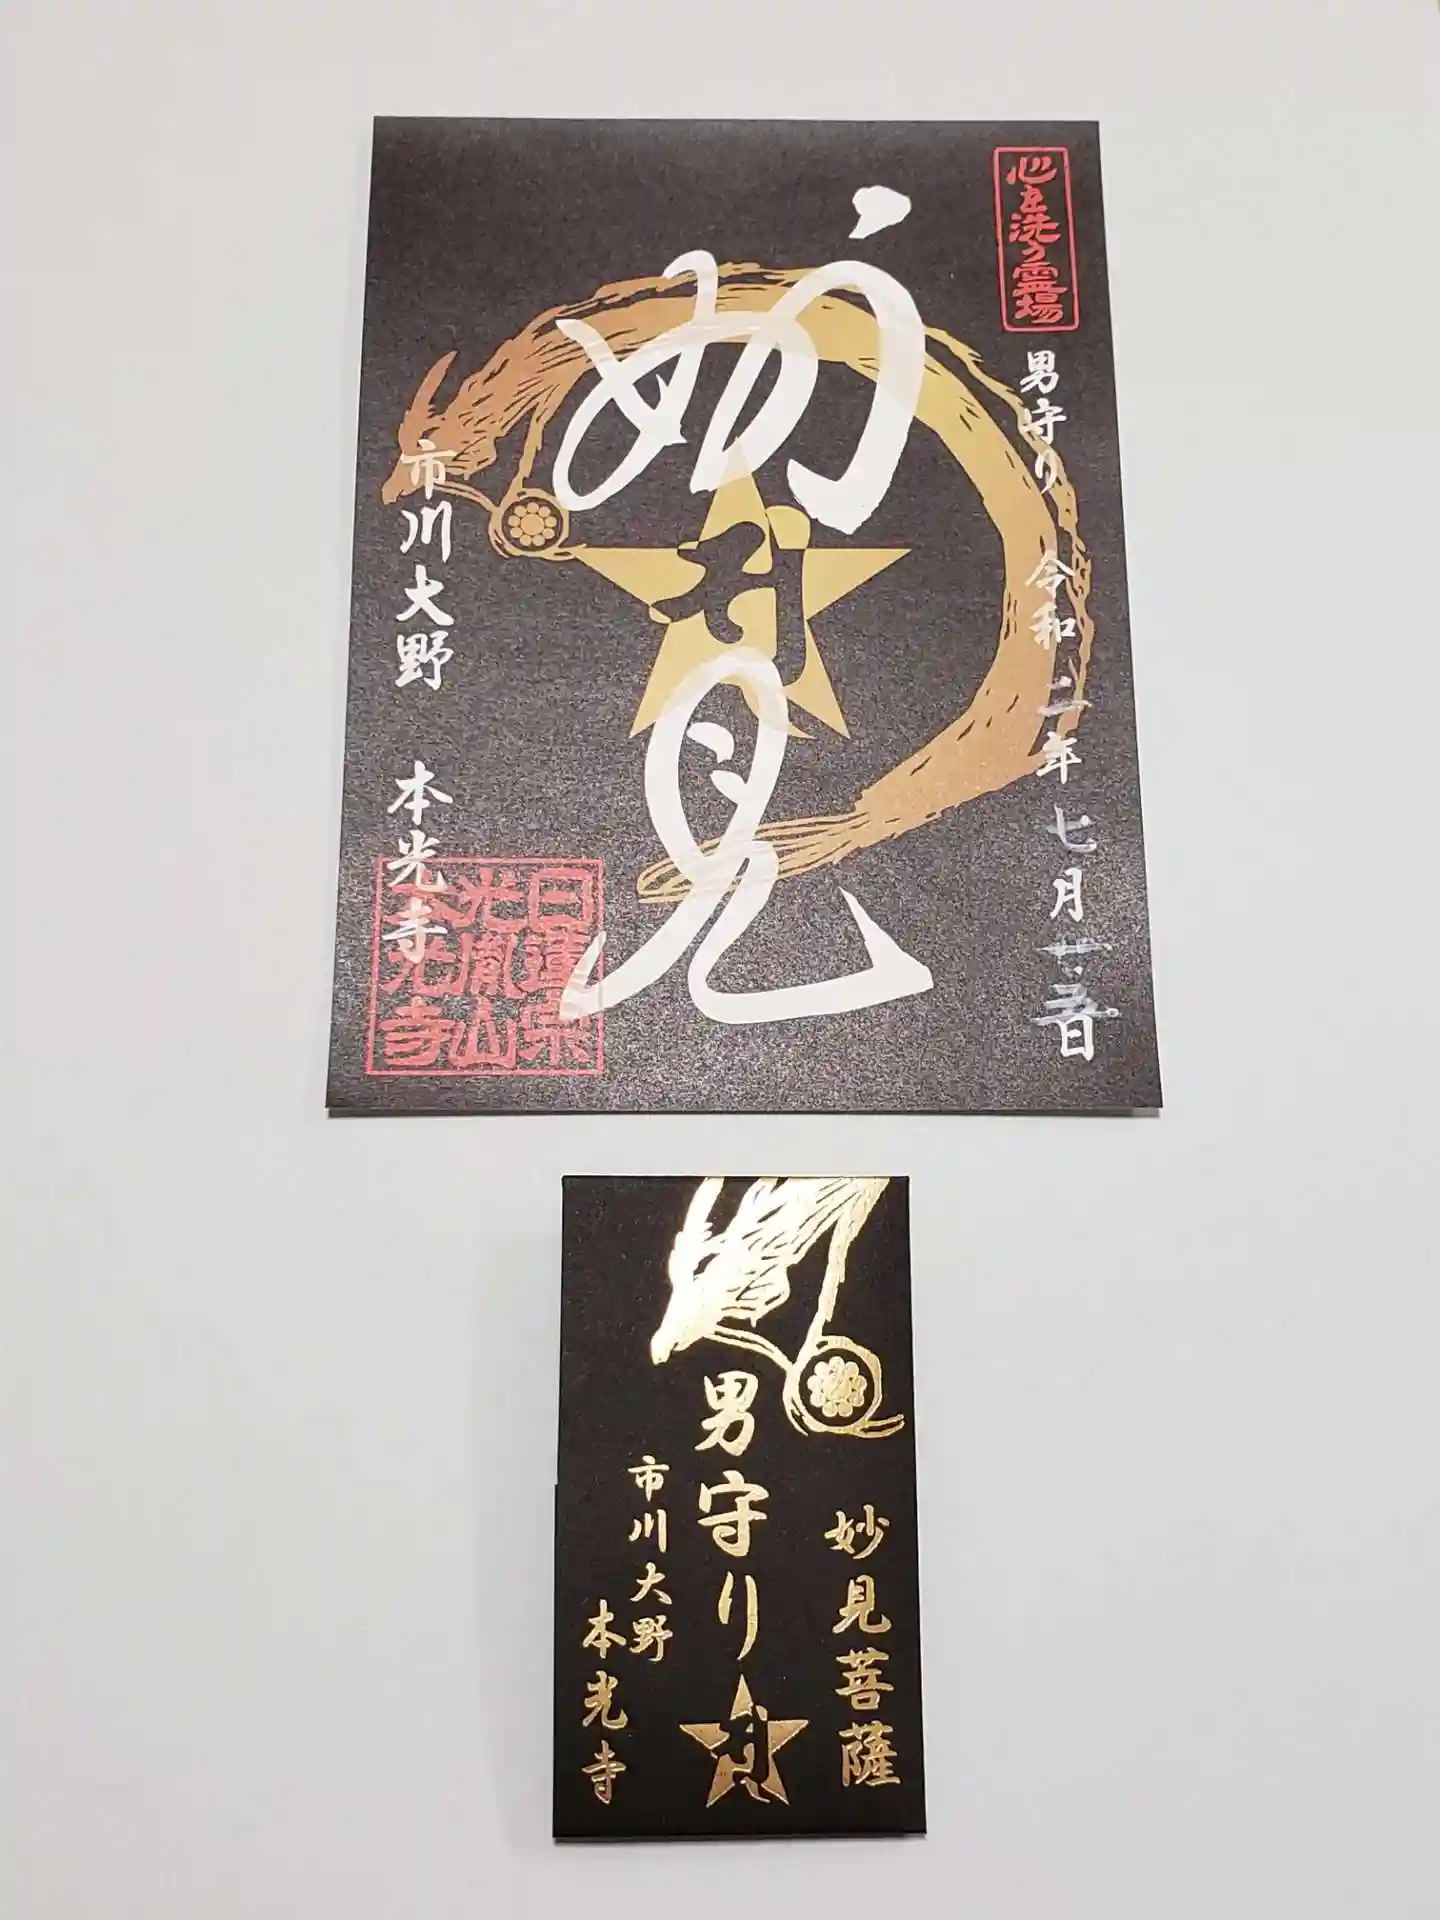 心を洗う霊場
男守り 令和二年七月廿五日
妙見
市川大野 本光寺
日蓮宗
光胤山
本光寺
妙見菩薩
男守り
市川大野
本光寺